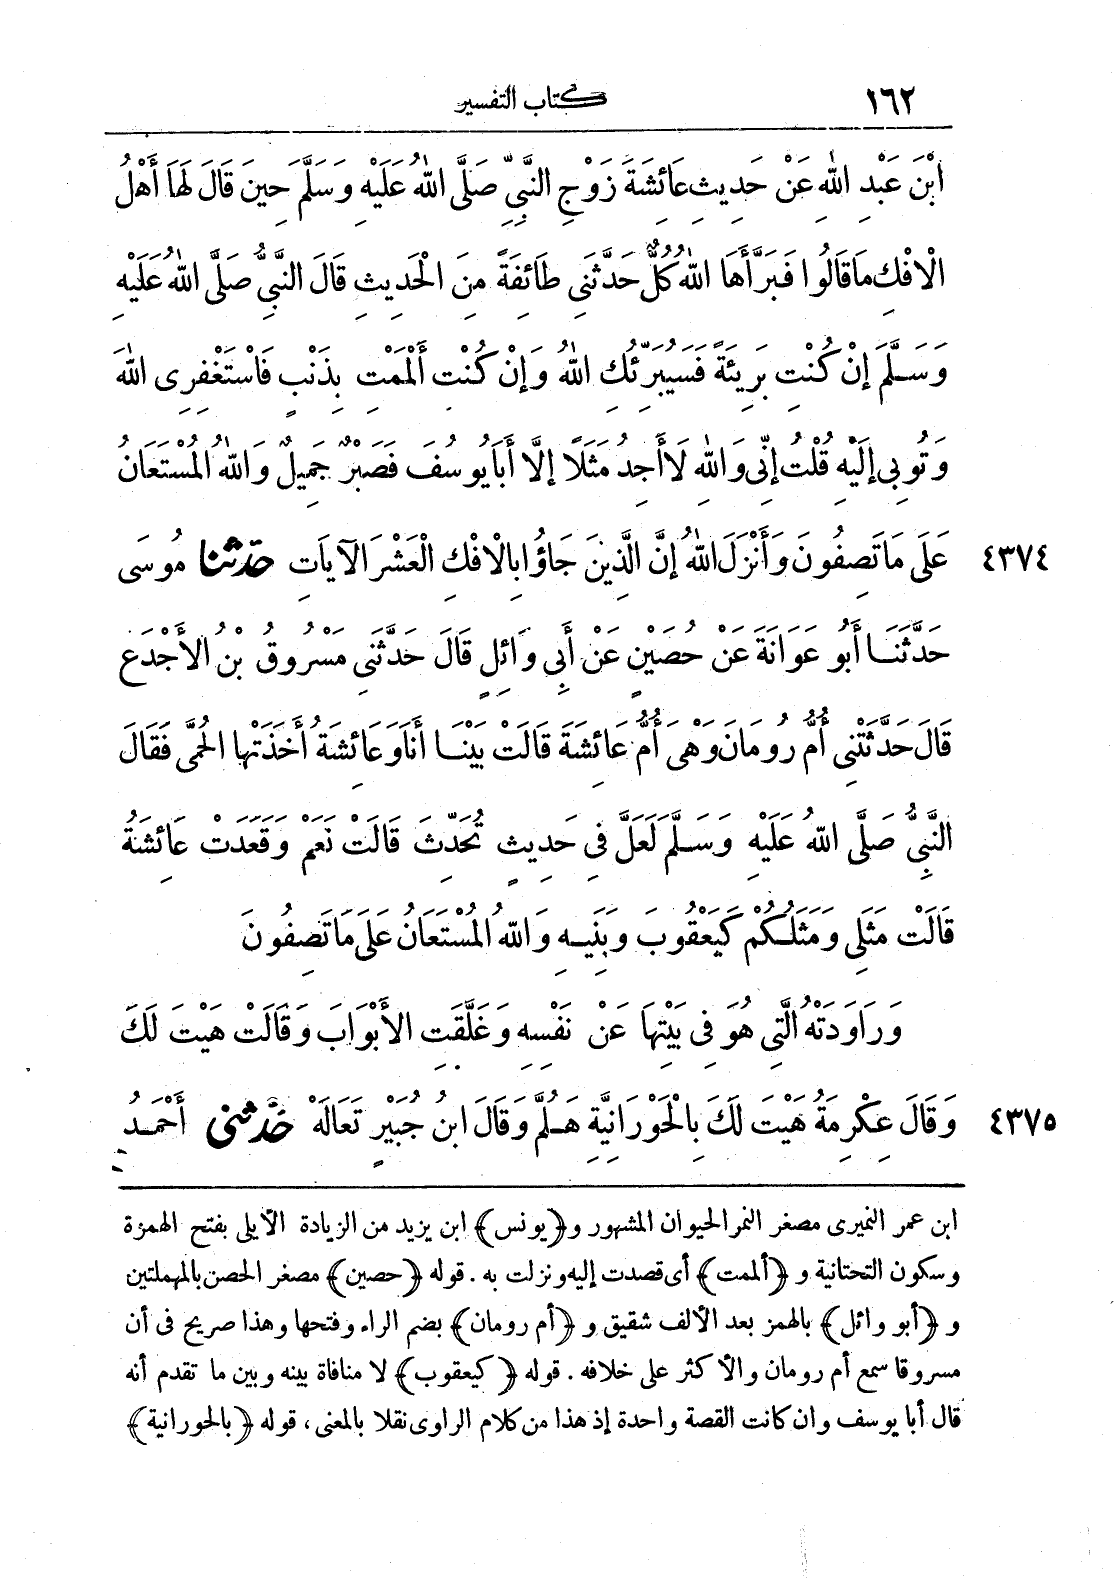 ١٦٢ كتاب التفسير
ابْنَ عَبْدِ اللهِ عَنْ حَدِيثِ عَائِشَةَ زَوْجِ النَّبِيِّ صَلَّى اللهُ عَلَيْهِ وَسَلَّمَ حِينَ قَالَ لَهَا أَهْلُ
الْافْكِ مَا قَالُوا فَبَرَّأَهَا اللهُ كُلٌّ حَدَّثَنِى طَائِفَةً مِنَ الْحَدِيثِ قَالَ النَّبِيُّ صَلَّى اللهُ عَلَيْهِ
وَسَلَّمَ إِنْ كُنْتِ بَرِيئَةً فَسَيُبَرِّئُكِ اللهُ وَإِنْ كُنْتِ أَلْمَمْتِ بِذَنْبٍ فَاسْتَغْفِرِى اللهَ
وَتُوبِى إِلَيْهِ قُلْتُ إِنِّى وَاللهِ لَا أَجِدُ مَثَلًا إِلَّا أَبَا يُوسُفَ فَصَبْرٌ جَمِيلٌ وَاللهُ الْمُسْتَعَانُ
٤٣٧٤ عَلَى مَا تَصِفُونَ وَأَنْزَلَ اللهُ إِنَّ الَّذِينَ جَاؤُا بِالْافْكِ الْعَشْرَ الآيَاتِ حَدَّثَنَا مُوسَى
حَدَّثَنَا أَبُو عَوَانَةَ عَنْ حُصَيْنٍ عَنْ أَبِى وَائِلٍ قَالَ حَدَّثَنِى مَسْرُوقُ بْنُ الأَجْدَعِ
قَالَ حَدَّثَتْنِى أُمُّ رُومَانَ وَهْىَ أُمُّ عَائِشَةَ قَالَتْ بَيْنَا أَنَا وَعَائِشَةُ أَخَذَتْهَا الْحُمَّى فَقَالَ
النَّبِيُّ صَلَّى اللهُ عَلَيْهِ وَسَلَّمَ لَعَلَّ فِى حَدِيثٍ تُحُدِّثَ قَالَتْ نَعَمْ وَقَعَدَتْ عَائِشَةُ
قَالَتْ مَثَلِى وَمَثَلُكُمْ كَيَعْقُوبَ وَبَنِيهِ وَاللهُ الْمُسْتَعَانُ عَلَى مَا تَصِفُونَ
وَرَاوَدَتْهُ الَّتِي هُوَ فِى بَيْتِهَا عَنْ نَفْسِهِ وَغَلَّقَتِ الأَبْوَابَ وَقَالَتْ هَيْتَ لَكَ
٤٣٧٥ وَقَالَ عِكْرِمَةُ هَيْتَ لَكَ بِالْحَوْرَانِيَّةِ هَلُمَّ وَقَالَ ابْنُ جُبَيْرٍ تَعَالَهْ حَدَّثَنِى أَحْمَدُ
ابن عمر النميرى مصغر النمر الحيوان المشهور و﴿يونس﴾ ابن يزيد من الزيادة الآيلى بفتح الهمزة
وسكون التحتانية و ﴿ألممت﴾ أى قصدت إليه ونزلت به . قوله ﴿حصين﴾ مصغر الحصن بالمهملتين
و ﴿أبو وائل﴾ بالهمز بعد الألف شقيق و ﴿أم رومان﴾ بضم الراء وفتحها وهذا صريح فى أن
مسروقا سمع أم رومان والأكثر على خلافه . قوله ﴿كيعقوب﴾ لا منافاة بينه وبين ما تقدم أنه
قال أبا يوسف وان كانت القصة واحدة إذ هذا من كلام الراوى نقلا بالمعنى ، قوله ﴿بالحورانية﴾